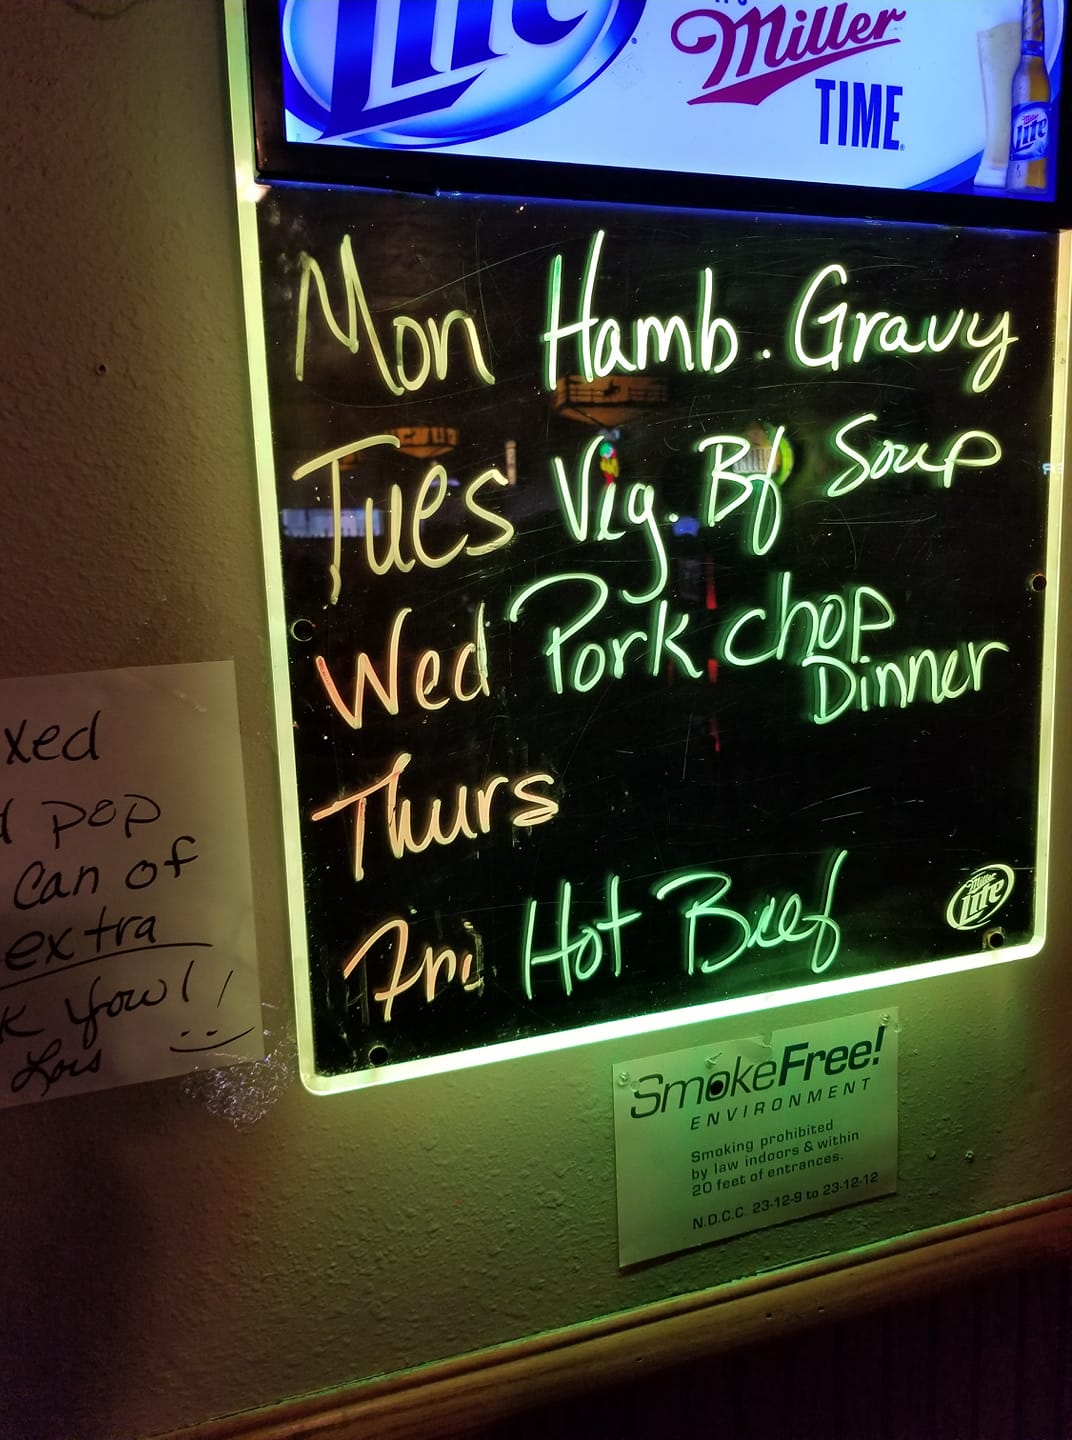 Lite
Miller
TIME
Miller
Lite
Mon Hamb. Gravy
Tues Veg. Bf Soup
Wed Pork chop
Dinner
Thurs
Fri Hot Beef
Miller
Lite
xed
pop
Can of
extra
You!!
Lois
SmokeFree!
ENVIRONMENT
Smoking prohibited
by law indoors & within
20 feet of entrances.
N.D.C.C. 23-12-9 to 23-12-12